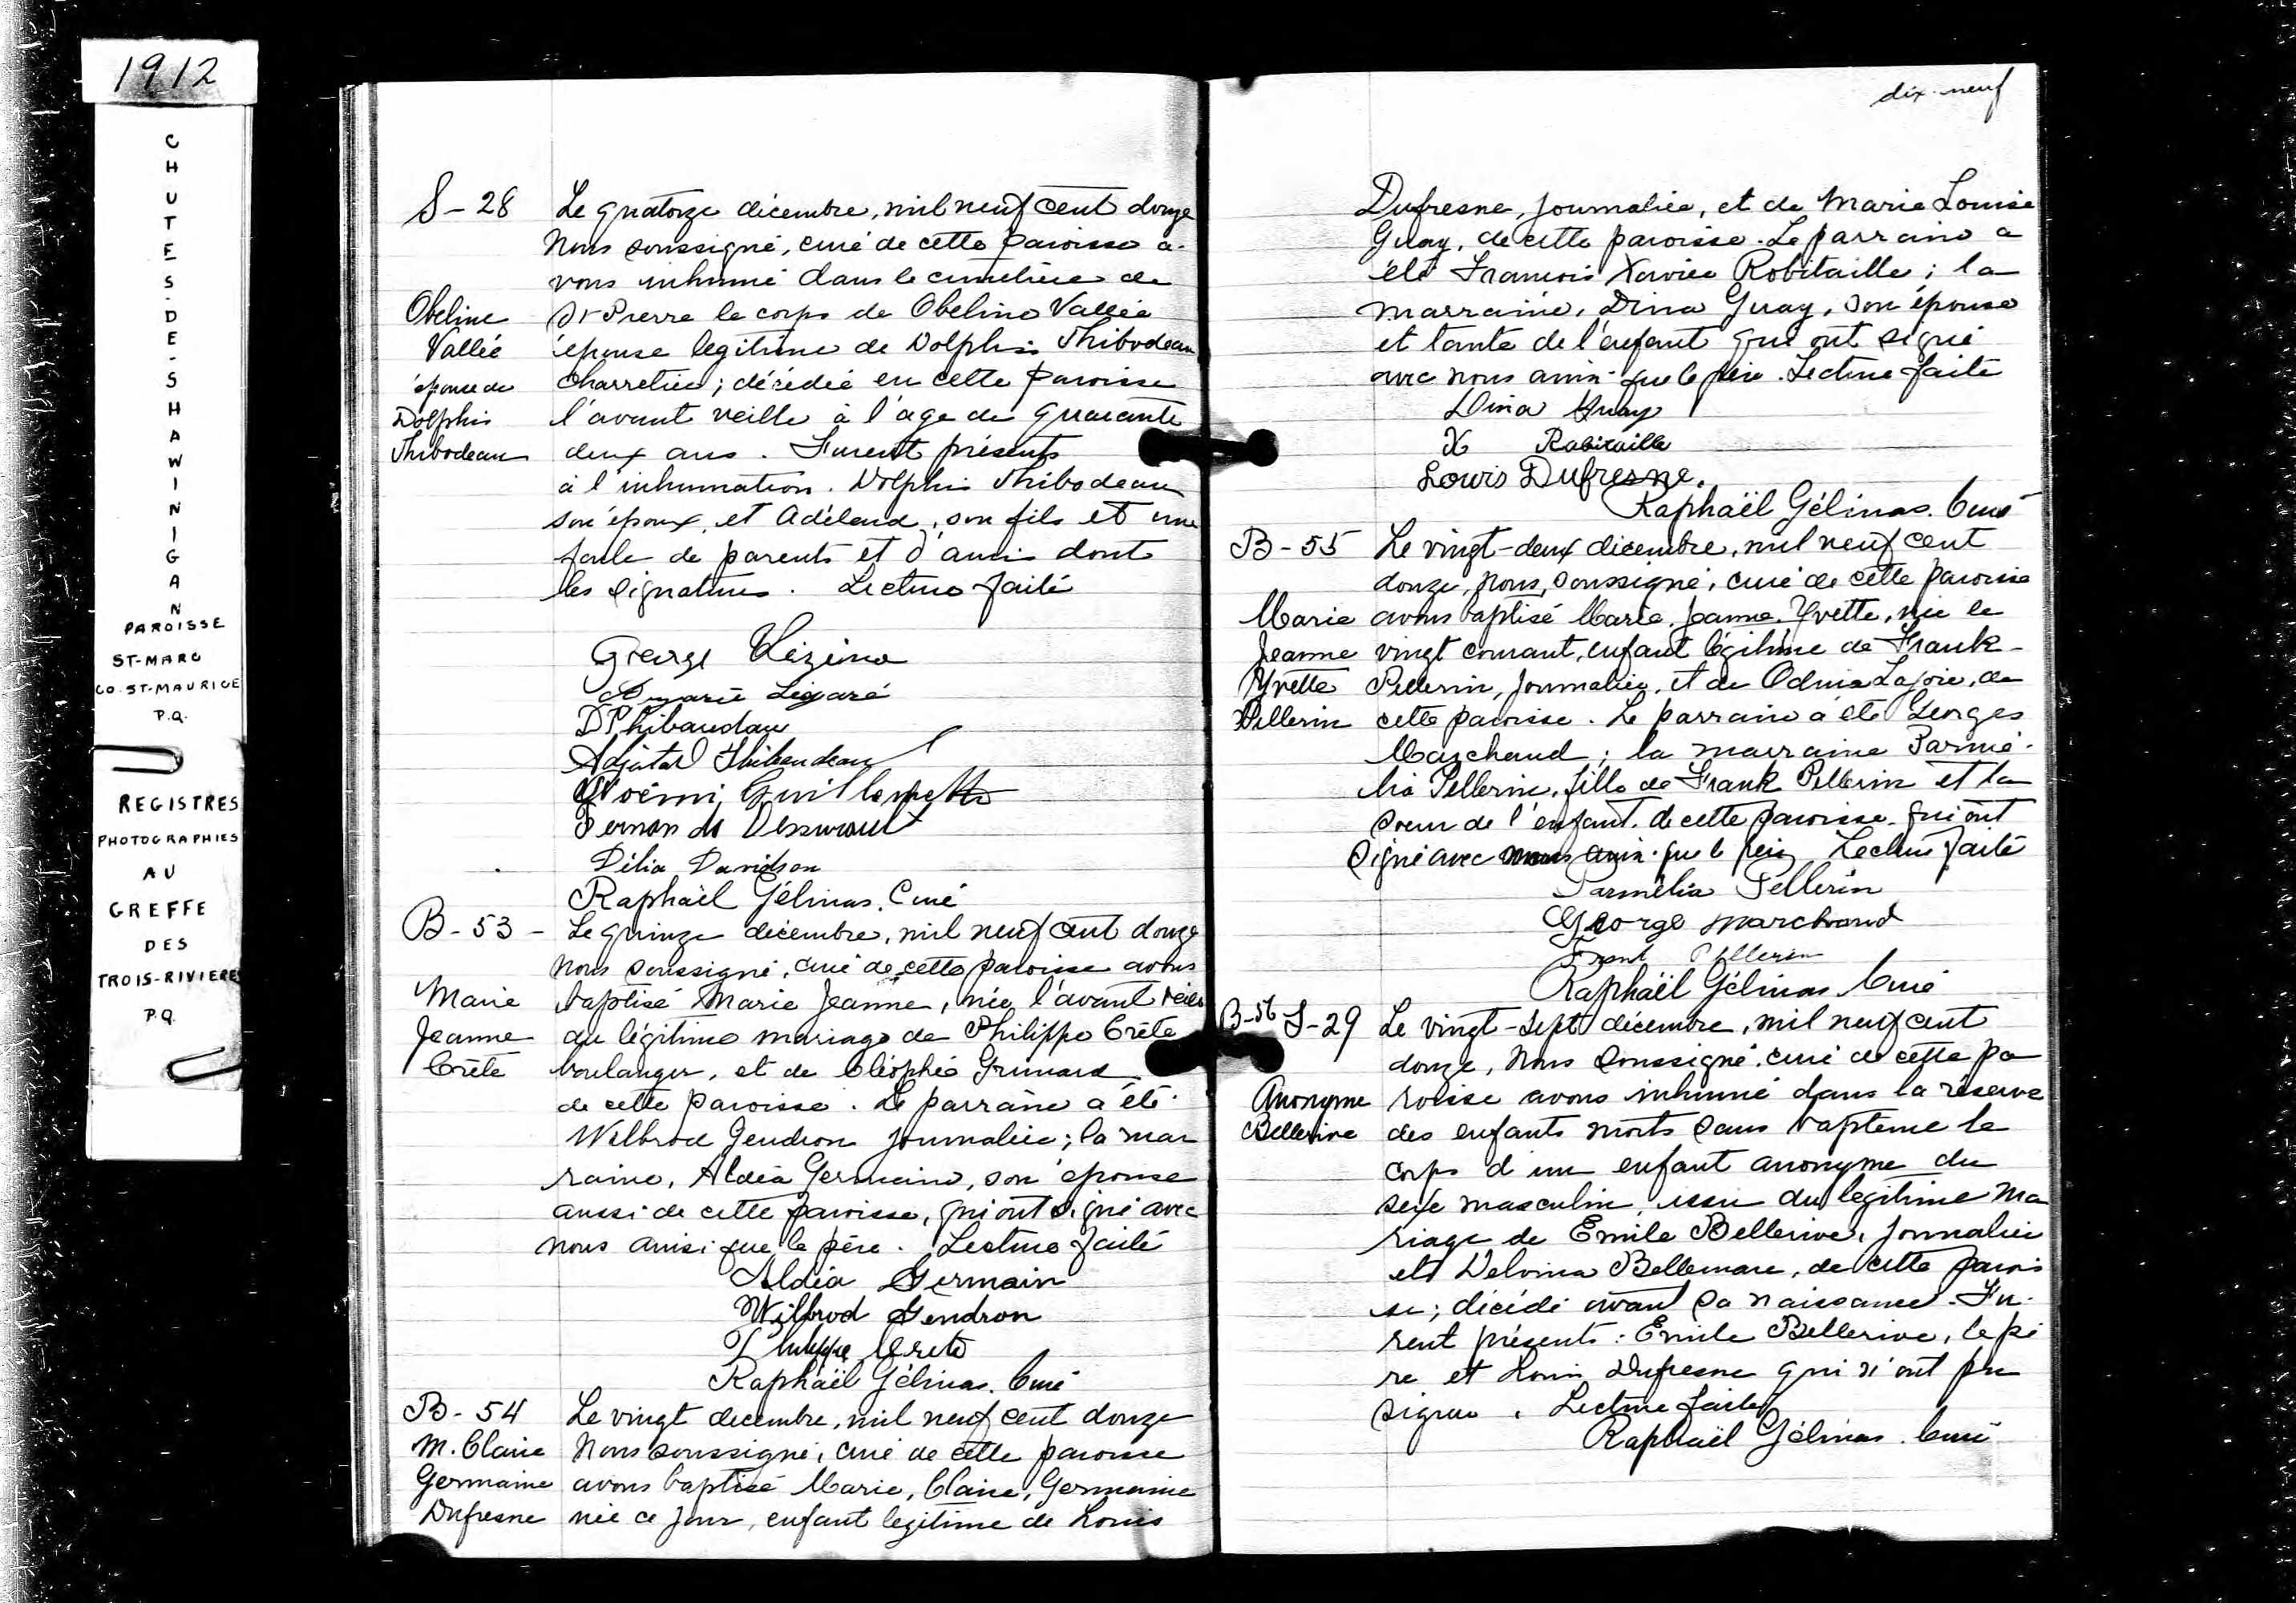 1912
CHUTES-DE-SHAWINIGAN
PAROISSE
ST-MARC
CO. ST-MAURICE
P.Q.
REGISTRES
PHOTOGRAPHIES
AU
GREFFE
DES
TROIS-RIVIERES
P.Q.
S-28
Obeline
Vallée
épouse de
Dolphis
Thibodeau
Le quatorze décembre, mil neuf cent douze
Nous soussigné, curé de cette paroisse a-
vons inhumé dans le cimetière de
St Pierre le corps de Obeline Vallée
épouse legitime de Dolphis Thibodeau
charretier; décédée en cette paroisse
l'avant veille à l'age de quarante
deux ans. Furent présents
à l'inhumation. Dolphis Thibodeau
son époux, et Adélard, son fils et une
foule de parents et d'amis dont
les signatures. Lecture faite
George Vézina
Légaré
D Thibaudau
Thibaudeau
Noëmi Guillemette
Délia Davidson
Raphaël Gélinas. Curé
B-53 -
Marie
Jeanne
Crête
Le quinze décembre, mil neuf cent douze
Nous soussigné, curé de cette paroisse avons
baptisé Marie Jeanne, née l'avant veille
du légitime mariage de Philippe Crête
boulanger, et de Cléophée Grimard
de cette paroisse. Le parrain a été
Wilbrod Gendron journalier; la mar
raine, Aldéa Germain, son épouse
aussi de cette paroisse, qui ont signé avec
nous ainsi que le père. Lecture faite
Aldéa Germain
Wilbrod Gendron
Philippe Crete
Raphaël Gélinas. Curé
B-54
M. Claire
Germaine
Dufresne
Le vingt decembre, mil neuf cent douze
Nous soussigné, curé de cette paroisse
avons baptisé Marie, Claire, Germaine
née ce jour, enfant legitime de Louis
dix-neuf
Dufresne, journalier, et de Marie Louise
Guay, de cette paroisse. Le parrain a
été Francois Xavier Robitaille; la
marraine, Dina Guay, son épouse
et tante de l'enfant qui ont signé
avec nous ainsi que le père. Lecture faite
Dina Guay
X Robitaille
Louis Dufresne.
Raphaël Gélinas. Curé
B-55
Marie
Jeanne
Yvette
Pellerin
Le vingt-deux décembre, mil neuf cent
douze, nous, soussigné, curé de cette paroisse
avons baptisé Marie, Jeanne, Yvette, née le
vingt courant, enfant légitime de Frank-
Pellerin, journalier, et de Odina Lajoie, de
cette paroisse. Le parrain a été Georges
Marchand; la marraine Parmé-
lia Pellerin, fille de Frank Pellerin et la
soeur de l'enfant, de cette paroisse qui ont
signé avec nous ainsi que le père. Lecture faite
Parmélia Pellerin
George Marchand
Frank Pellerin
Raphaël Gélinas Curé
B-56 S-29
Anonyme
Bellerive
Le vingt-sept décembre, mil neuf cent
douze, Nous soussigné, curé de cette pa
roisse avons inhumé dans la réserve
des enfants morts sans baptême le
corps d'un enfant anonyme du
sexe masculin, issu du legitime ma
riage de Emile Bellerive, journalier
et Delvina Bellemare, de cette parois
se; décédé avant sa naissance. Fu-
rent présents: Emile Bellerive, le pè
re et Louis Dufresne qui n'ont pu
signer. Lecture faite
Raphaël Gélinas. Curé